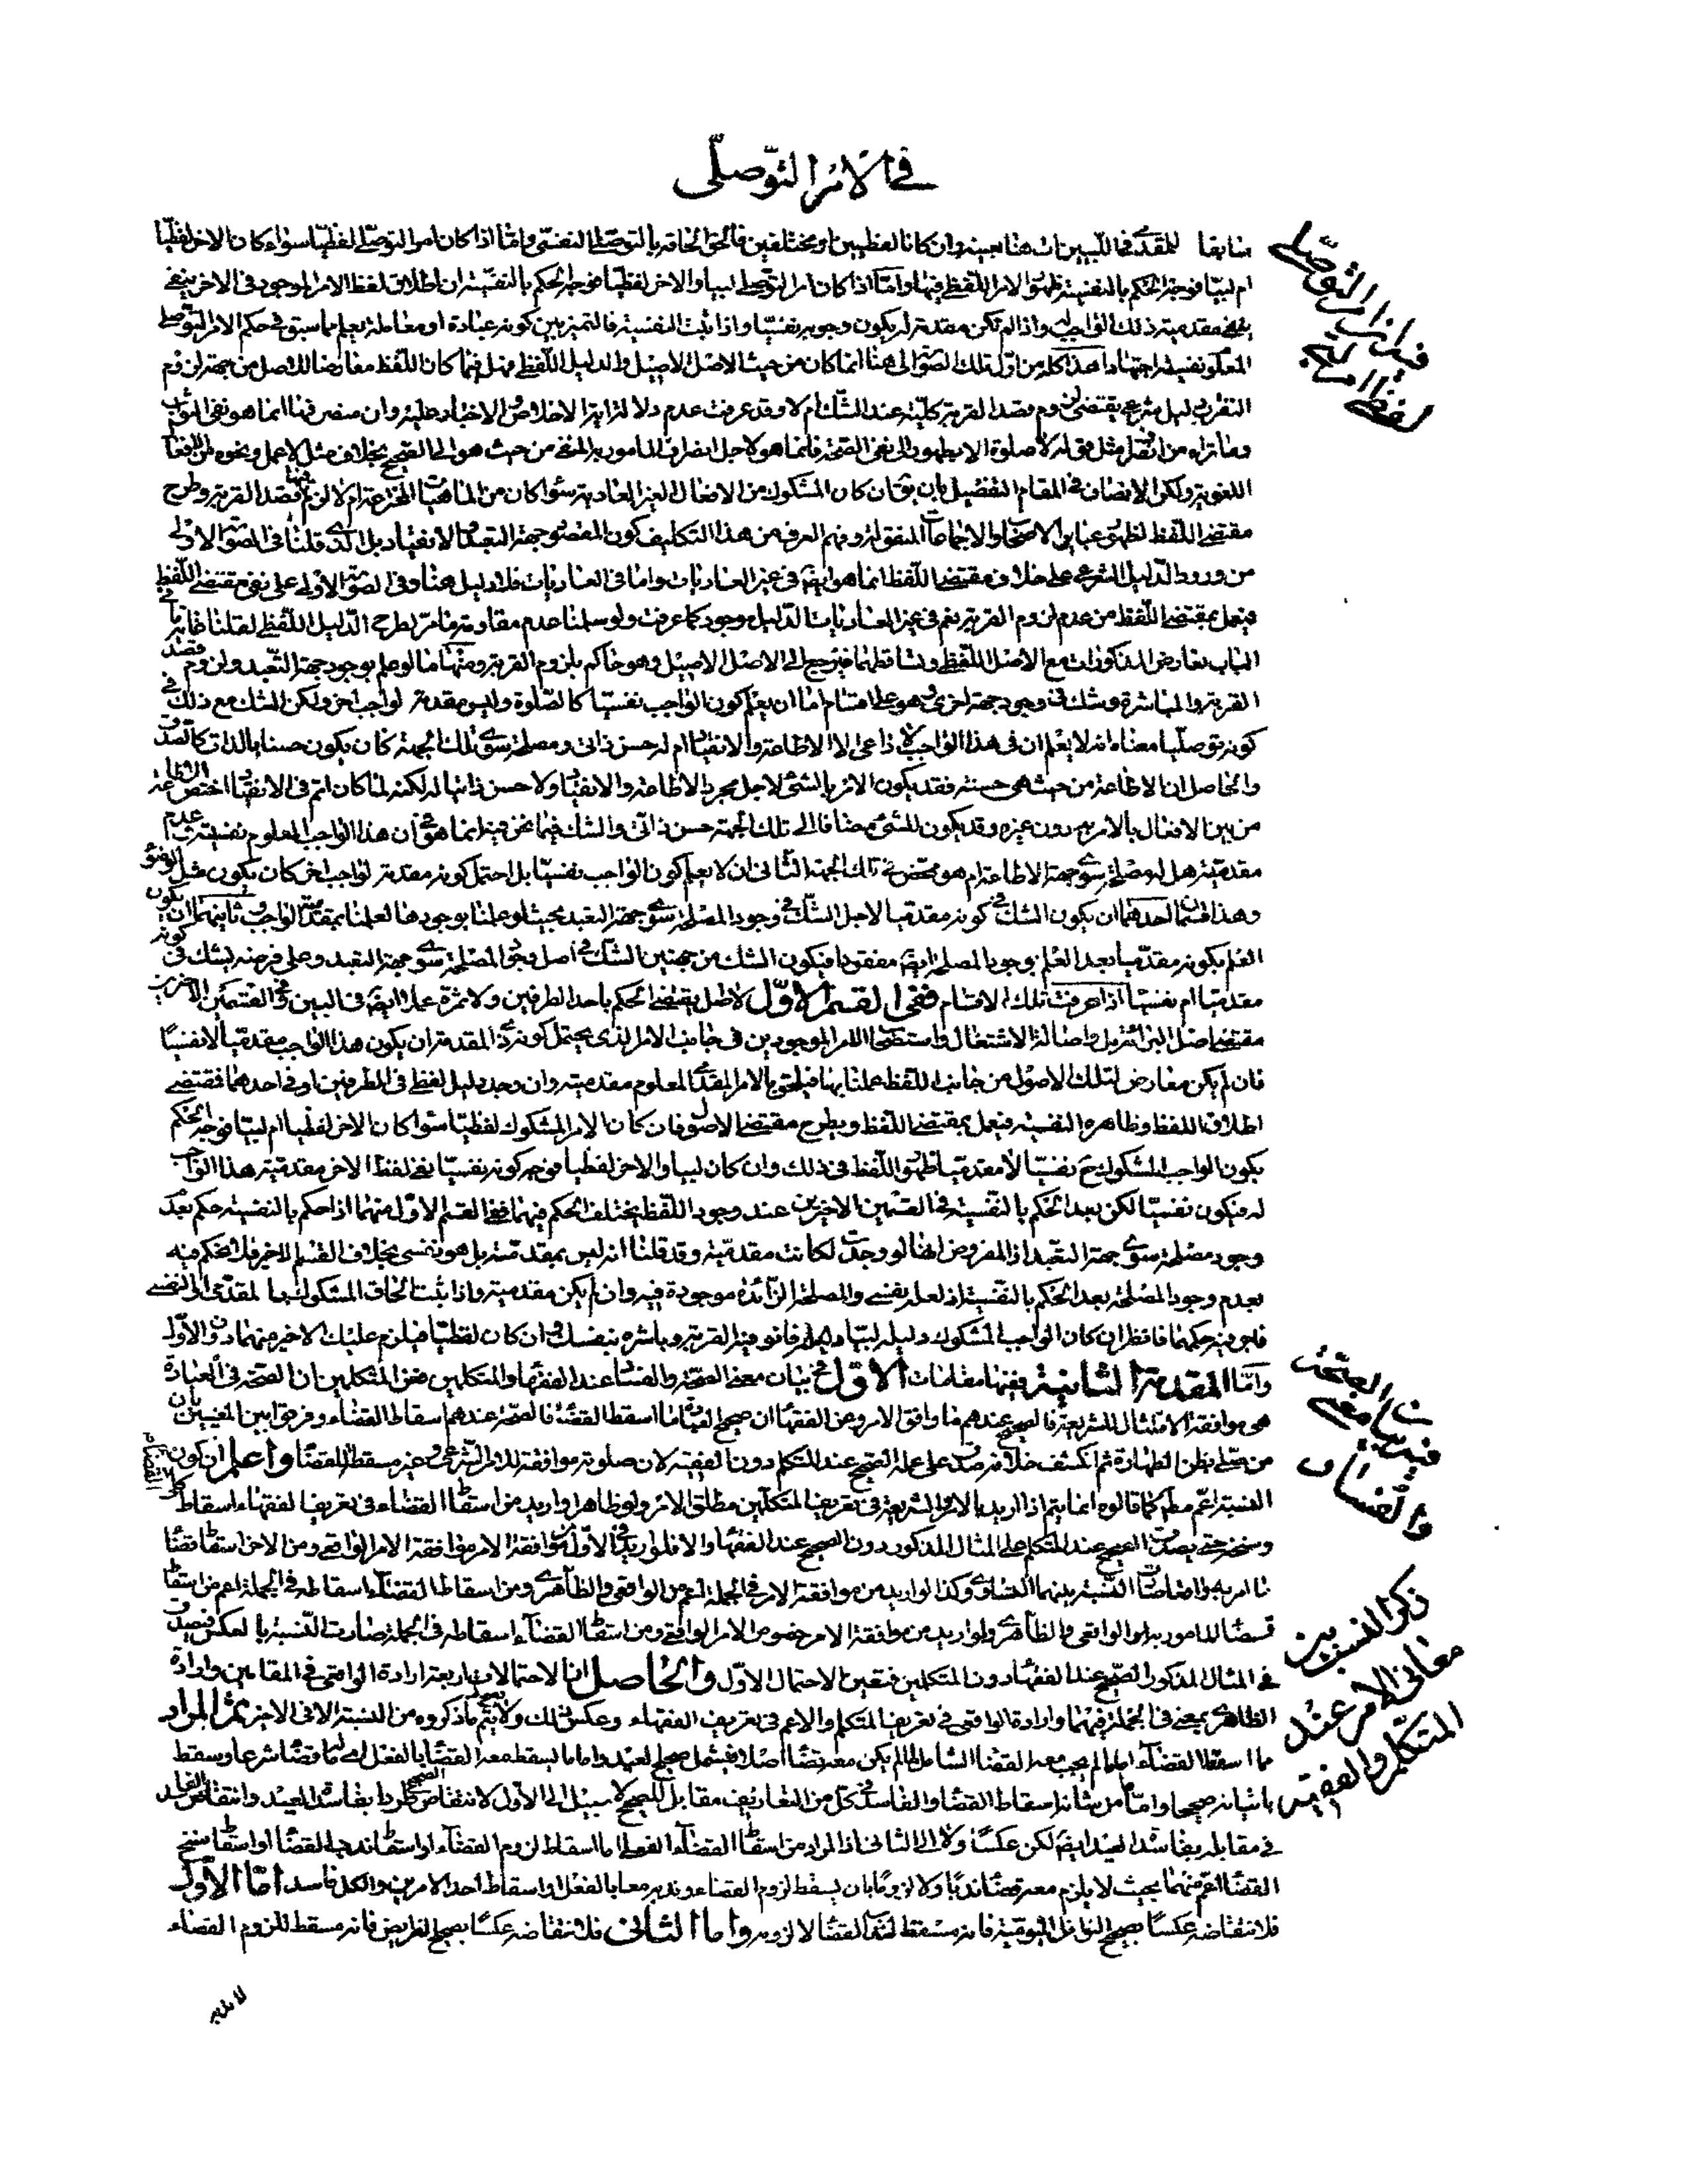 في الامر التوصّلي
سابقا للمقدمى فى اللبيين ات هنا بعينه وان كانا لفظيين او مختلفين فالحق الحاقه بالتوصلى النفسى وامّا اذا كان امر التوصلى لفظيّا سواء كان الاخر لفظيّا
ام لبيّا فوجه الحكم بالنفسية ظهور الامر اللفظى فيها وامّا اذا كان امر التوصلى لبيا والاخر لفظيّا فوجه الحكم بالنفسيّة ان اطلاق لفظ الامر الموجود فى الاخر ينفى
مقدميته ذلك الواجب له واذا لم تكن مقدمة له يكون وجوبه نفسيّا واذا ثبت النفسية فالتميز بين كونه عبادة او معاملة يعلم مما سبق فى حكم الامر التوصلى
المعلوم نفسيته اجتهادا هذا كله من اوّل تلك الصور الى هنا انما كان من حيث الاصل الاصيل والدليل اللفظى فهل فيما كان اللفظ معارضا للاصل من جهة لزوم
التقرب دليل شرعى يقتضى لزوم قصد القربة كلية عند الشك ام لا وقد عرفت عدم دلالة اية الاخلاص والاخبار عليه وان منصرفها انما هو نفى الثواب
وما تراه من انصراف مثل قوله لا صلوة الا بطهور الى نفى الصحة فانما هو لاجل انصراف المامور به المنفى من حيث هو الى الصحيح بخلاف مثل لا عمل ونحوه من الافعال
اللغوية ولكن الانصاف فى المقام التفصيل بان يق ان كان المشكوك من الافعال الغير العادية سواء كان من الماهيات المخترعة ام لا لزم فيها قصد القربة وطرح
مقتضى اللفظ لظهور عبائر الاصحاب والاجماعات المنقولة وفهم العرف من هذا التكاليف كون المقصود جهة التعبد والانقياد بل الذى قلنا فى الصور الاولى
من ورود الدليل الشرعى على خلاف مقتضى اللفظ انما هو ايضا فى غير العاديات واما فى العاديات فلا دليل هنا وفى الصور الاولى على نفى مقتضى اللفظ
فيعمل بمقتضى اللفظ من عدم لزوم القربة نعم فى غير العاديات الدليل موجود كما عرفت ولو سلمنا عدم مقاومة ما مر لطرح الدليل اللفظى لقلنا غاية ما فى
الباب تعارض المذكورات مع الاصل اللفظى وتساقطهما فيرجع الى الاصل الاصيل وهو حاكم بلزوم القربة ومنها ما لو علم بوجود جهة التعبد ولزوم قصد
القربة والمباشرة وشك فى وجود جهة اخرى وهو على اقسام اما ان يعلم كون الواجب نفسيّا كالصلوة وليس مقدمة لواجب اخر ولكن الشك مع ذلك فى
كونه توصليا معناه انه لا يعلم ان فى هذا الواجب لا داعى الا الاطاعة والانقياد ام له حسن ذاتى ومصلحة سوى تلك الجهة كان يكون حسنا بالذات كالصدق
والحاصل ان الاطاعة من حيث هى حسنة فقد يكون الامر بالشئ لاجل مجرد الاطاعة والانقياد ولا حسن ذاتيا له لكنه لما كان اتم فى الانقياد اختص
من بين الافعال بالامر به دون غيره وقد يكون للشئ مضافا الى تلك الجهة حسن ذاتى والشك فيما نحن فيه انما هو فى ان هذا الواجب المعلوم نفسيته
مقدميته هل له مصلحة سوى جهة الاطاعة ام هو متمحض فى تلك الجهة الثانى ان لا يعلم كون الواجب نفسيّا بل احتمل كونه مقدمة لواجب اخر كان يكون مثل الوضوء
وهذا قسمان احدهما ان يكون الشك فى كونه مقدميا لاجل الشك فى وجود المصلحة سوى جهة التعبد بحيث لو علمنا بوجودها لعلمنا بمقدمية الواجب وثانيهما ان يكون
العلم بكونه مقدميا بعد العلم بوجود المصلحة ايضا مفقودا فيكون الشك من جهتين الشك فى اصل وجود المصلحة سوى جهة التعبد وعلى فرضه يشك فى كونه
مقدميا ام نفسيّا اذا عرفت تلك الاقسام ففى القسم الاوّل لا اصل يقتضى الحكم باحد الطرفين ولا ثمرة عملا ايضا فى البين وفى القسمين الاخيرين
مقتضى اصل البرائة بل واصالة الاشتغال واستصحاب الامر الموجودين فى جانب الامر الذى يحتمل كونه ذى المقدمة ان يكون هذا الواجب مقدميا لا نفسيّا
فان لم يكن معارض لتلك الاصول من جانب اللفظ عملنا بها فيلحق بالامر المقدمى المعلوم مقدميته وان وجد دليل لفظى فى الطرفين او فى احدهما فمقتضى
اطلاق اللفظ وظاهره النفسية فيعمل بمقتضى اللفظ ويطرح مقتضى الاصول فان كان الامر المشكوك لفظيّا سواء كان الاخر لفظيا ام لبيّا فوجه الحكم
بكون الواجب المشكوك ح نفسيّا لا مقدميا ظهور اللفظ فى ذلك وان كان لبيا والاخر لفظيا فوجه كونه نفسيّا نفى لفظ الاخر مقدميّة هذا الواجب
له فيكون نفسيّا لكن بعد الحكم بالنفسية فى القسمين الاخيرين عند وجود اللفظ يختلف الحكم فيهما ففى القسم الاوّل منهما اذا حكم بالنفسية حكم بعدم
وجود مصلحة سوى جهة التعبد اذ المفروض انها لو وجدت لكانت مقدميّة وقد قلنا انه ليس بمقدميّة بل هو نفسى بخلاف القسم الاخير فلا يحكم فيه
بعدم وجود المصلحة بعد الحكم بالنفسية اذ لعله نفسى والمصلحة الزائدة موجودة فيه وان لم يكن مقدمية واذا ثبت الحاق المشكوك بالمقدمى او النفسى
فاجرينه حكمهما فانظر ان كان الواجب المشكوك دليله لبيّا فانو فيه القربة وباشره بنفسك وان كان لفظيّا فيلزم عليك الاخير منهما دون الاوّل
وامّا المقدمة الثانية ففيها مقامات الاوّل فى بيان معنى الصحّة والفساد عند الفقهاء والمتكلمين فعن المتكلمين ان الصحة فى العبادة
هى موافقة الامتثال للشريعة فالصحيح عندهم ما وافق الامر وعن الفقهاء ان صحيح العبادة ما اسقط القضاء فالصحة عندهم اسقاط القضاء وفرعوا بين المعنيين بان
من صلّى بظن الطهارة ثم انكشف خلافه صدق على عمله الصحيح عند المتكلم دون الفقيه لان صلوته موافقة للامر الشرعى وغير مسقط للقضاء واعلم ان كون
النسبة اعم مطلقا كما قالوه انما يتم اذا اريد بالامر والشريعة فى تعريف المتكلمين مطلق الامر ولو ظاهرا واريد من اسقاط القضاء فى تعريف الفقهاء اسقاط
حتى يصدق الصحيح عند المتكلم على المثال المذكور دون الصحيح عند الفقهاء والا فلو اريد فى الاوّل من موافقة الامر موافقة الامر الواقعى ومن الاخر اسقاط قضاء
ما امر به واقعا صارت النسبة بينهما التساوى وكذا لو اريد من موافقة الامر فى الجملة اعم من الواقعى والظاهرى ومن اسقاط القضاء اسقاطه فى الجملة اعم من اسقاط
قضاء المامور به الواقعى والظاهرى ولو اريد من موافقة الامر خصوص الامر الواقعى ومن اسقاط القضاء اسقاطه فى الجملة صارت النسبة بالعكس فيصدق
فى المثال المذكور الصحيح عند الفقهاء دون المتكلمين فتعين الاحتمال الاوّل والحاصل ان الاحتمالات اربعة ارادة الواقعى فى المقامين وارادة
الظاهرى بمعنى فى الجملة فيهما وارادة الواقعى فى تعريف المتكلم والاعم فى تعريف الفقهاء وعكس ذلك ولا يتم ما ذكروه من النسبة الا فى الاخير ثم المراد
مما اسقط القضاء اما ما لم يجب معه القضاء الشامل لما لم يكن معه قضاء اصلا فيشمل صحيح العيد واما ما يسقط معه القضاء بالفعل اى لما قضاء شرعا وسقط
باتيانه صحيحا وامّا ما من شانه اسقاط القضاء والفاسد فى كل من التعاريف مقابل للصحيح لا سبيل الى الاوّل لانتقاض الصحيح طردا بفاسد العيد وانتقاض الفاسد
فى مقابله بفاسد العيد ايضا لكن عكسا ولا الى الثانى اذ المراد من اسقاط القضاء الفعلى اما اسقاط لزوم القضاء او اسقاط ندب القضاء او اسقاط سنخ
القضاء اعم منهما بحيث لا يلزم معه قضاء ندبا ولا لزوما بان يسقط لزوم القضاء وندبه معا بالفعل او اسقاط احد الامرين والكل فاسد امّا الاوّل
فلانتقاضه عكسًا بصحيح النوافل اليومية فانه مسقط لندب القضاء لا لزومه واما الثانى فلانتقاضه عكسًا بصحيح الفرائض فانه مسقط للزوم القضاء
لا ندبه
فيما اذا كان امر التوصّلي لفظيا
فى بيان معنى الصحّة والفساد
ذكر النسب بين معانى الامر عند المتكلم والفقيه